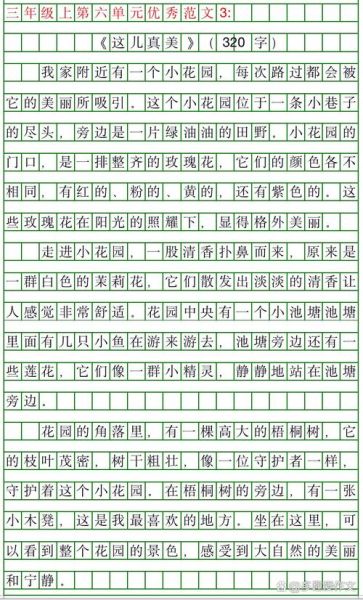 三年级上第六单元优秀范文3:
《这儿真美》（320字）
我家附近有一个小花园，每次路过都会被
它的美丽所吸引。这个小花园位于一条小巷子
的尽头，旁边是一片绿油油的田野。小花园的
门口，是一排整齐的玫瑰花，它们的颜色各不
相同，有红的、粉的、黄的，还有紫色的。这
些玫瑰花在阳光的照耀下，显得格外美丽。
走进小花园，一股清香扑鼻而来，原来是
一群白色的茉莉花，它们散发出淡淡的清香让
人感觉非常舒适。花园中央有一个小池塘池塘
里面有几只小鱼在游来游去，池塘旁边还有一
些莲花，它们像一群小精灵，静静地站在池塘
旁边．
花园的角落里，有一棵高大的梧桐树，它
的枝叶茂密，树干粗壮，像一位守护者一样，
守护着这个小花园。在梧桐树的旁边，有一张
小木凳，这是我最喜欢的地方。坐在这里，可
以看到整个花园的景色，感受到大自然的美丽
和宁静。